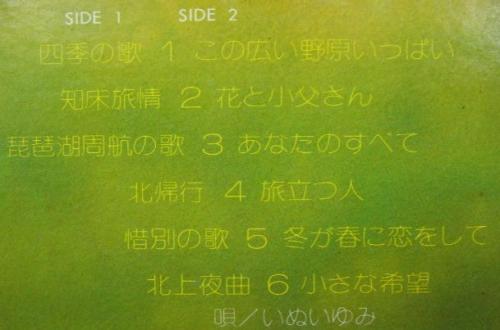 SIDE 1 SIDE 2
四季の歌 1 この広い野原いっぱい
知床旅情 2 花と小父さん
琵琶湖周航の歌 3 あなたのすべて
北帰行 4 旅立つ人
惜別の歌 5 冬が春に恋をして
北上夜曲 6 小さな希望
唄/いぬいゆみ